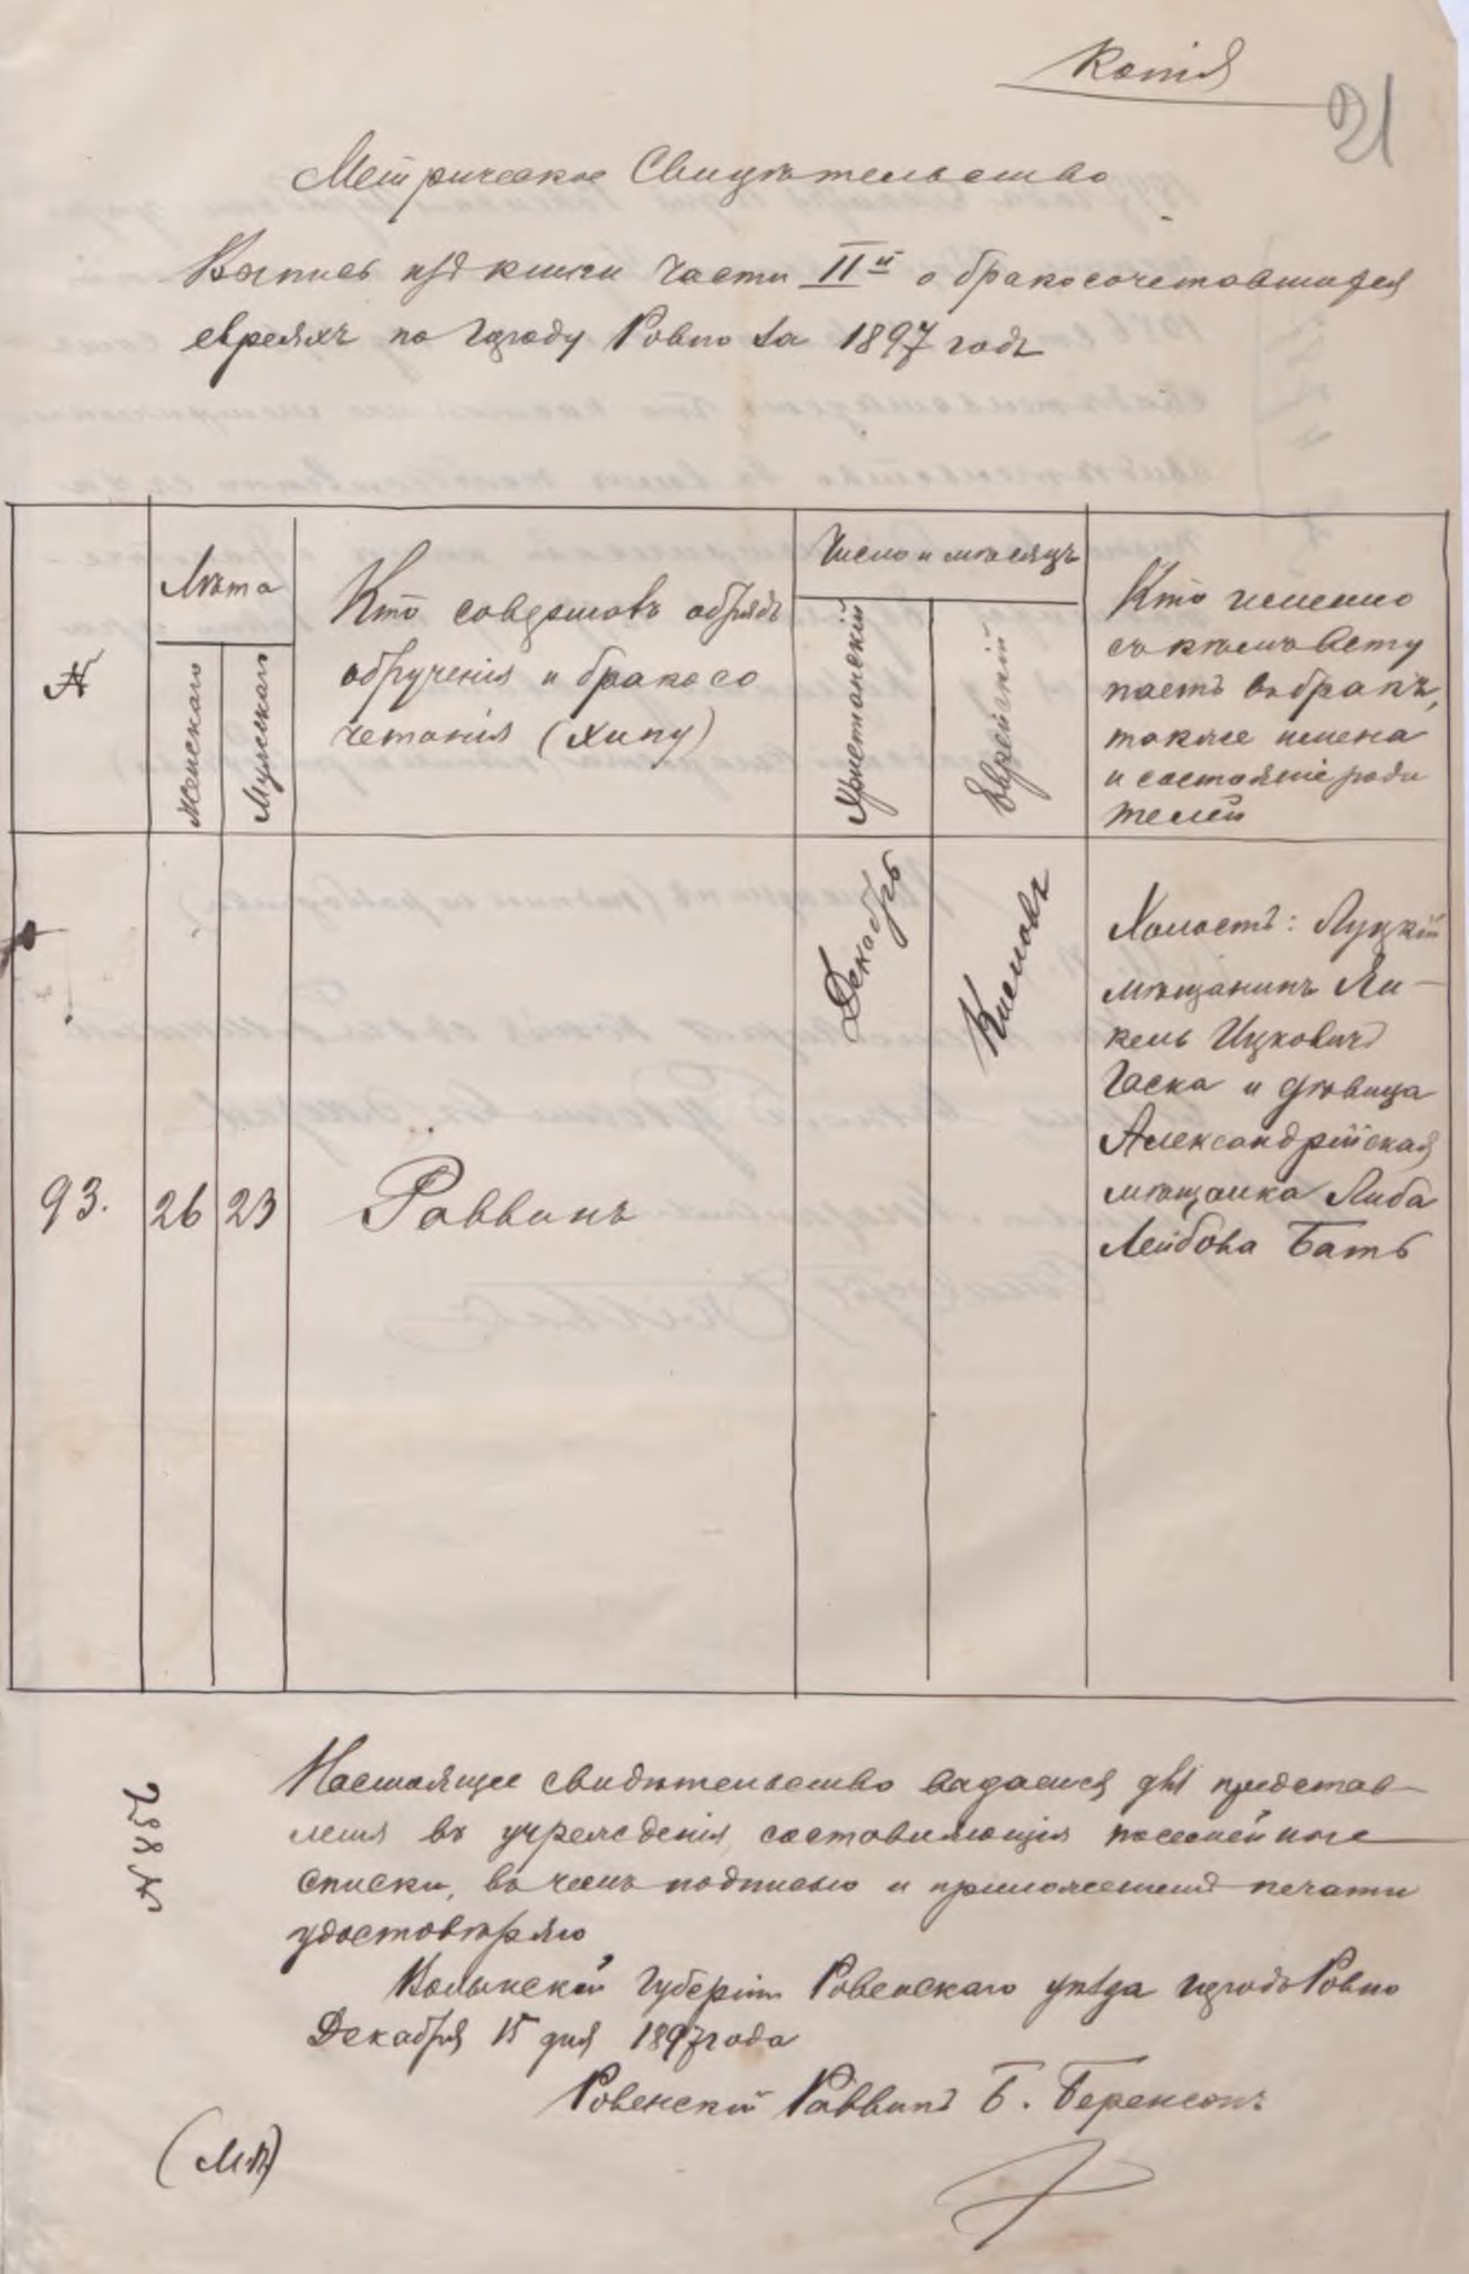 Копія
21
Метрическое Свидѣтельство
Выпись изъ книги части IIй о бракосочетавшихся
евреяхъ по городу Ровно за 1897 годъ
№
Лѣта
Женскаго
Мужскаго
Кто совершовъ обрядъ
обрученія и бракосо
четанія (хипу)
Число и мѣсяцъ
Христіанскій
Еврейскій
Кто именно
съ кѣмъ всту
паетъ въ бракъ,
также имена
и состояніе роди
телей
93.
26
23
Раввинъ
Декабрь
Кисловъ
Холостъ: Луцкій
мѣщанинъ Ян-
кель Ицковичъ
Гаска и дѣвица
Александрійская
мѣщанка Либа
Лейбова Батъ
№ 887
Настоящее свидѣтельство выдается для представ-
ленія въ учрежденія, составляющія посемейные
списки, въ чемъ подписью и приложеніемъ печати
удостовѣряю
Волынской Губерніи Ровенскаго уѣзда городъ Ровно
Декабря 15 дня 1897 года
Ровенскій Раввинъ Б. Беренсонъ
(М.П.)